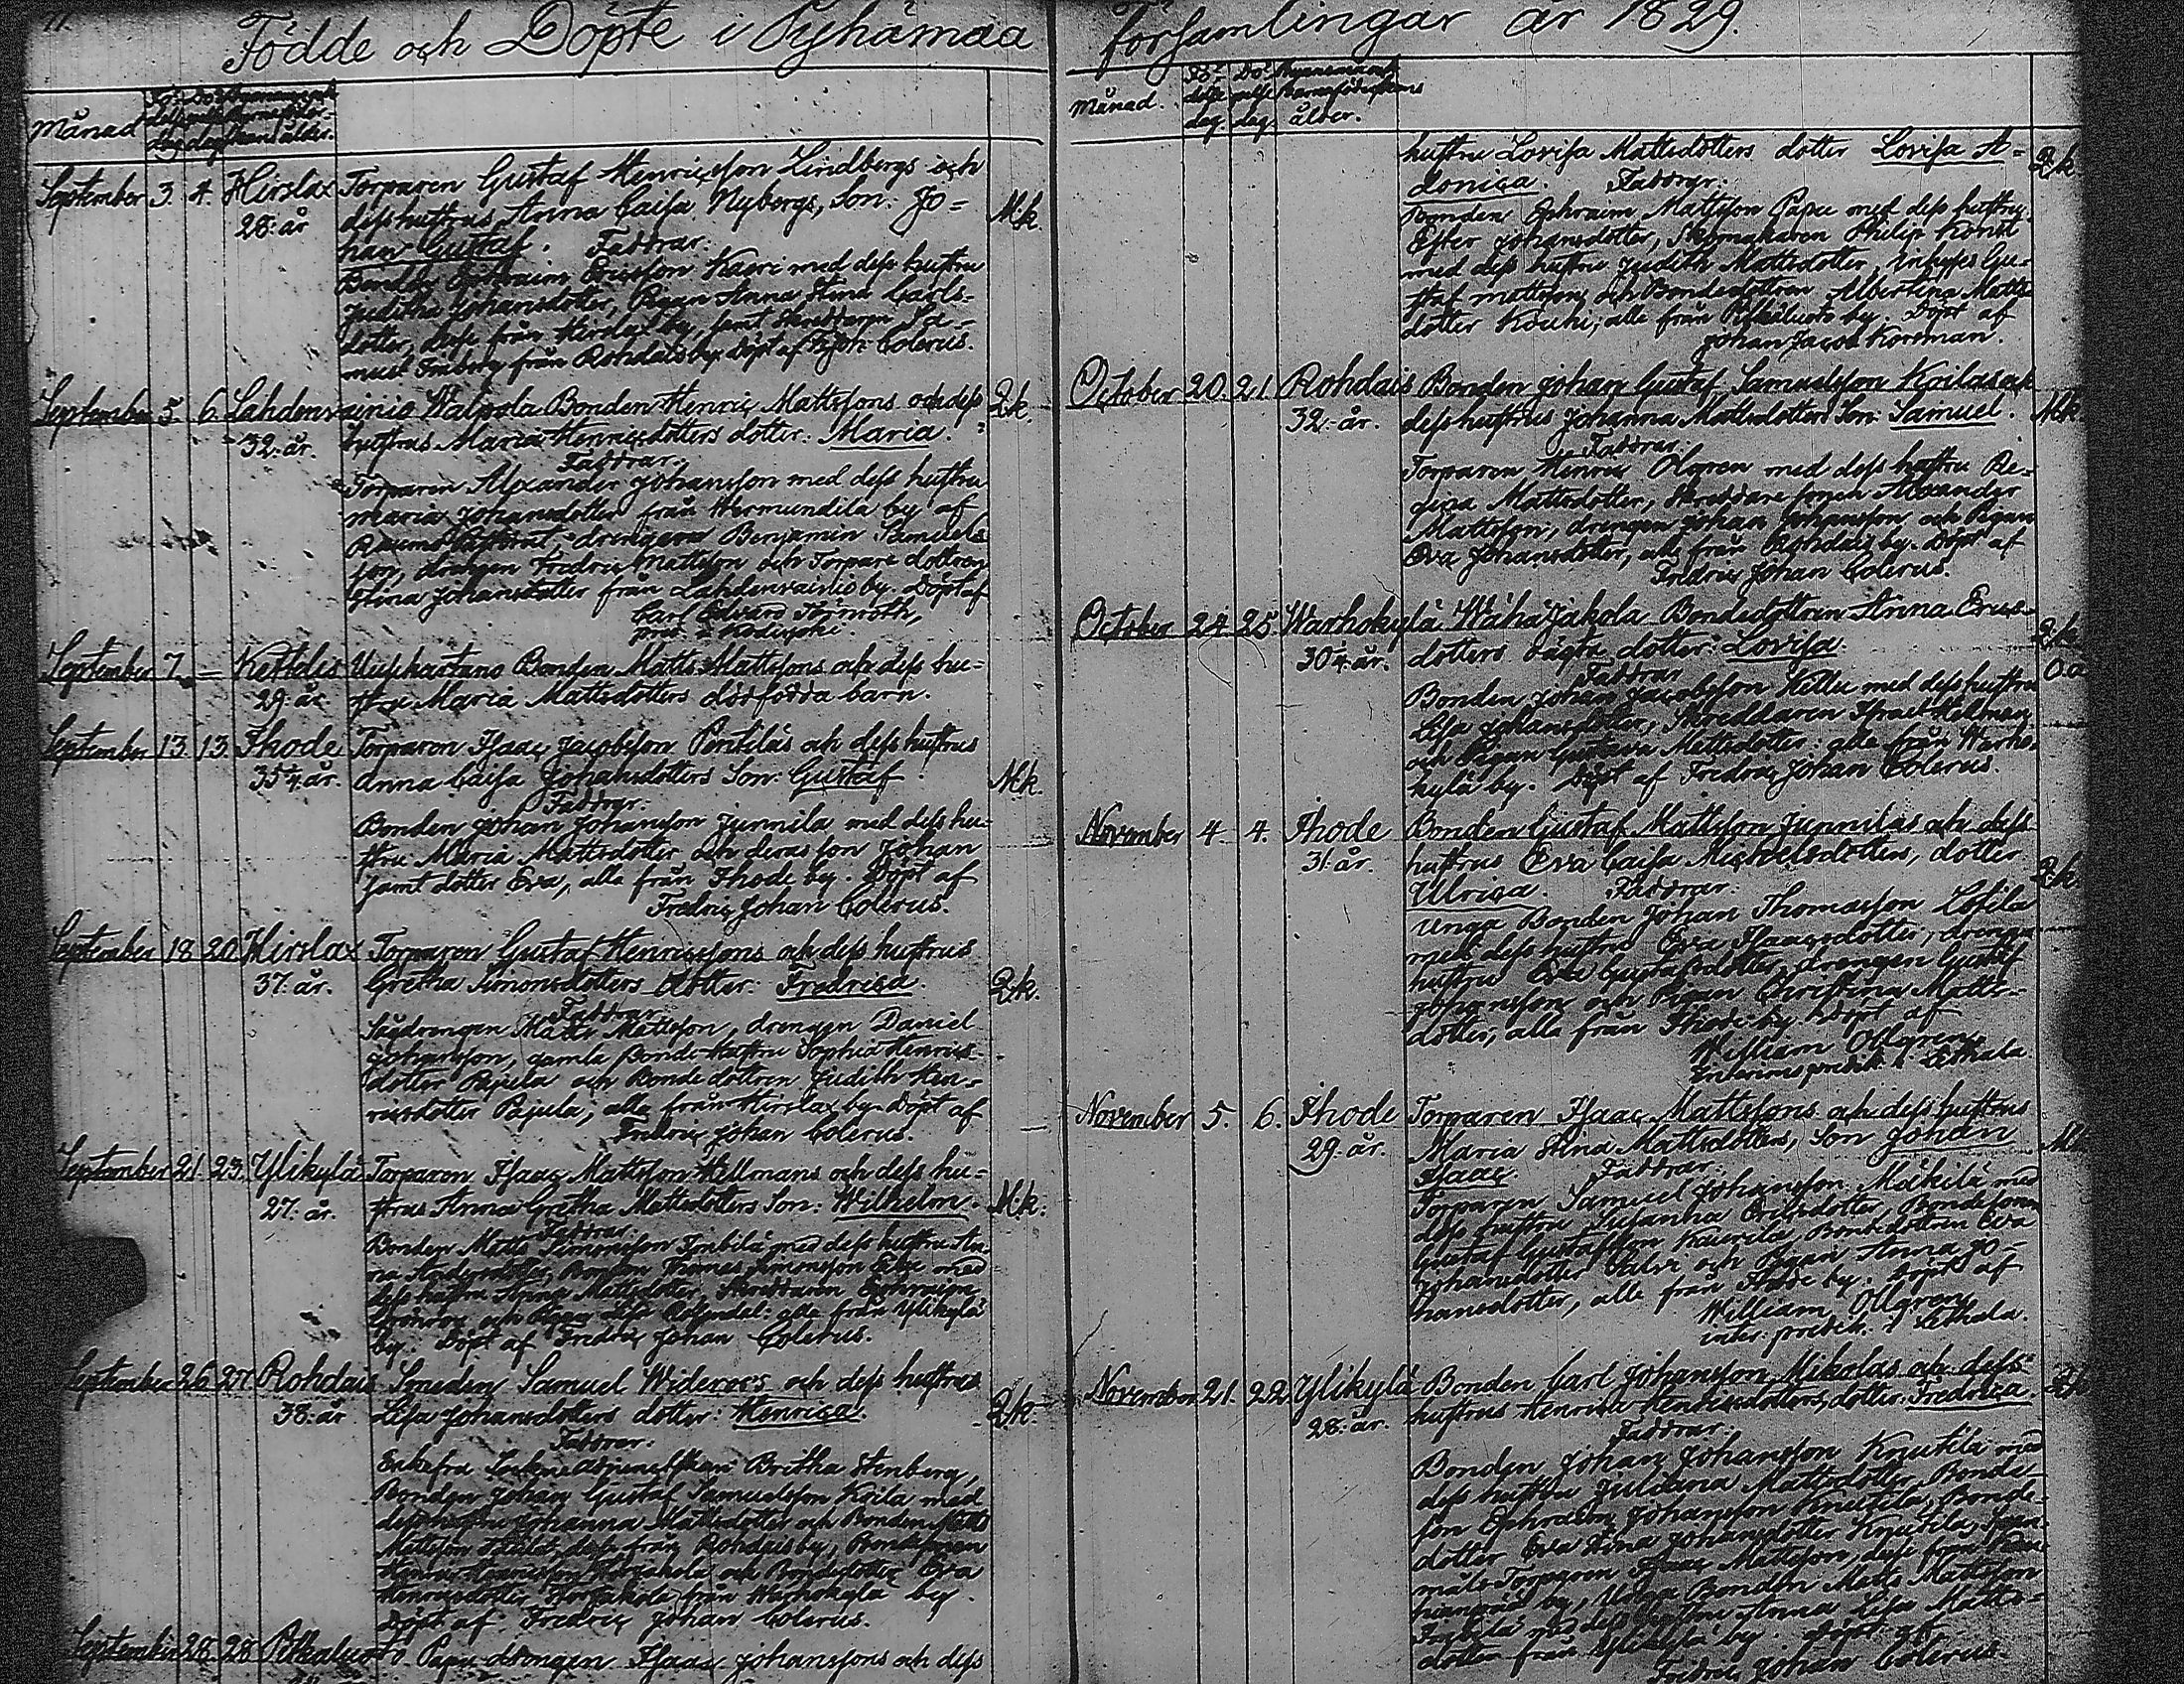 Födde och Döpte i Pyhämaa
Månad
September 3. 4. Hirslax Torparen Gustaf Henricsson Lindbergs och
28. år dess hustrus Anna Caisa Nybergs, Son: Jo= M.k.
han Gustaf. Faddrar:
Ephraim Ericsson med dess hustru
Juditha Johansdotter, Pigan Anna Stina Carls=
dotter, desse från Hirslax by, samt Skreddaren Sa=
muel från Rohdais by. Döpt af F. Joh: Colerus.
September 5. 6. Lahdenvainio Walpola Bonden Henric Mattssons och dess Q.k.
32. år. hustrus Maria Henricsdotters dotter: Maria.
Faddrar:
Torparen Alexander Johansson med dess hustru
Maria Johansdotter från Wermundila by af
Raumo drengen Benjamin Samuels
son, drengen Fredric Mattsson och Torpare dottren
Stina Johansdotter från Lahdenvainio by. Döpt af
Carl Edvard
September 7. = Kettelis Uusikartano Bonden Matts Mattssons och dess hu=
29. år. stru Maria Mattsdotters dödfödda barn.
September 13. 13. Ihode Torparen Isaac Jacobsson Penttiläs och dess hustrus
35¼ år. Anna Caisa Johansdotters Son: Gustaf. M.k.
Faddrar:
Bonden Johan Johansson Junnila med dess hu=
stru Maria Mattsdotter och deras son Johan
samt dotter Eva, alla från Ihode by. Döpt af
Fredric Johan Colerus.
September 18 20 Hirslax Torparen Gustaf Henricssons och dess hustrus
37. år. Gretha Simonsdotters dotter: Fredrica. Q.k.
Faddrar:
Matts Mattsson, drengen Daniel
Johansson, gamla Bonde Hustru Sophia Henrics=
dotter Pajula och Bonde dottren Judith Hen=
ricsdotter Pajula, alla från Hirslax by. Döpt af
Fredric Johan Colerus.
September 21. 23. Ylikylä Torparen Isaac Mattsson Hellmans och dess hu=
27. år. strus Anna Gretha Mattsdotters Son: Wilhelm. M.k.
Faddrar:
Bonden Matts Simonsson med dess hustru
Andersdotter, Bonden Thomas Simonsson med
dess hustru Mattsdotter, Skreddaren Ephraim
och Pigan Lisa alla från Ylikylä
by. Döpt af Fredric Johan Colerus.
September 26 27 Rohdais Smeden Samuel Wideroos och dess hustrus
38. år Lisa Johansdotters dotter: Henrica. Q.k.
Faddrar:
Enkefru Britha Stenberg,
Bonden Johan Gustaf Samuelsson Koila med
dess hustru Johanna Mattsdotter och Bonden Matts
Mattsson från Rohdais by,
och Bondedotter Eva
Henricsdotter från Warhokylä by.
Döpt af Fredric Johan Colerus.
September 28. 28 Pitkäluoto Papu drengen Isaac Johanssons och dess
församlingar år 1829.
Månad. ålder.
hustru Lovisa Mattsdotters dotter Lovisa A= Q.k
donica. Faddrar:
Bonden Ephraim Mattsson Papu med dess hustru
Ester Johansdotter, Skomakaren Philip
med dess hustru Judith Mattsdotter, Inhyses Gu=
staf Mattsson, och Bondedottren Albertina Matts
dotter Kouhi; alla från Pitkäluoto by. Döpt af
Johan Jacob Korsman.
October 20. 21. Rohdais Bonden Johan Gustaf Samuelsson Koilas och
32. år. dess hustrus Johanna Mattsdotters Son: Samuel. M.k
Faddrar:
Torparen Henric Ölgren med dess hustru Re=
gina Mattsdotter, Skreddare sonen Alexander
Mattsson, drengen Johan Johansson och Pigan
Eva Johansdotter, alla från Rohdais by. Döpt af
Fredric Johan Colerus.
October 24 25 Warhokylä Wähä Jakola Bondedottren Anna Erics= Q.k
30¼ år. dotters oägta dotter: Lovisa. O.ä
Faddrar
Bonden Johan Jacobsson Hellu med dess hustru
Lisa Johansdotter, Skreddaren
och Pigan Gustava Mattsdotter: alla från Warho=
kylä by. Döpt af Fredric Johan Colerus.
November 4. 4. Ihode Bonden Gustaf Mattsson Junnilas och dess
31. år. hustrus Eva Caisa Michelsdotters, dotter Q.k.
Ulrica. Faddrar:
Unga Bonden Johan Thomasson
med dess hustru Eva Isaacsdotter, drengs
hustru Eva Gustafsdotter, drengen Gustaf
Johansson och Pigan Christina Matts=
dotter, alla från Ihode by. Döpt af
William Ollgren
i Lethala.
November 5. 6. Ihode Torparen Isaac Mattssons och dess hustrus
29. år. Maria Stina Mattsdotters, Son Johan M.k
Isaac Faddrar:
Torparen Samuel Johansson Mäkilä med
dess hustru Susanna Ericsdotter, Bondesonen
Gustaf Gustafsson Bondedottren Eva
Johansdotter och Pigan Anna Jo=
hansdotter, alla från Ihode by. Döpt af
William Ollgren,
inter. predik. i Lethala.
November 21. 22. Ylikylä Bonden Carl Johansson Mikolas och dess Q.k
28. år. hustrus Henrica Henricsdotters, dotter: Fredrica.
Faddrar:
Bonden Johan Johansson Knutila med
dess hustru Juliana Mattsdotter, Bonde=
son Ephraim Johansson Knutila, Bonde=
dotter Eva Stina Johansdotter Knutila,
Torparen Isaac Mattsson, dess från
by, Unga Bonden Matts Mattsson
med dess hustru Anna Lisa Matts=
dotter från Ylikylä by. Döpt af
Fredric Johan Colerus.